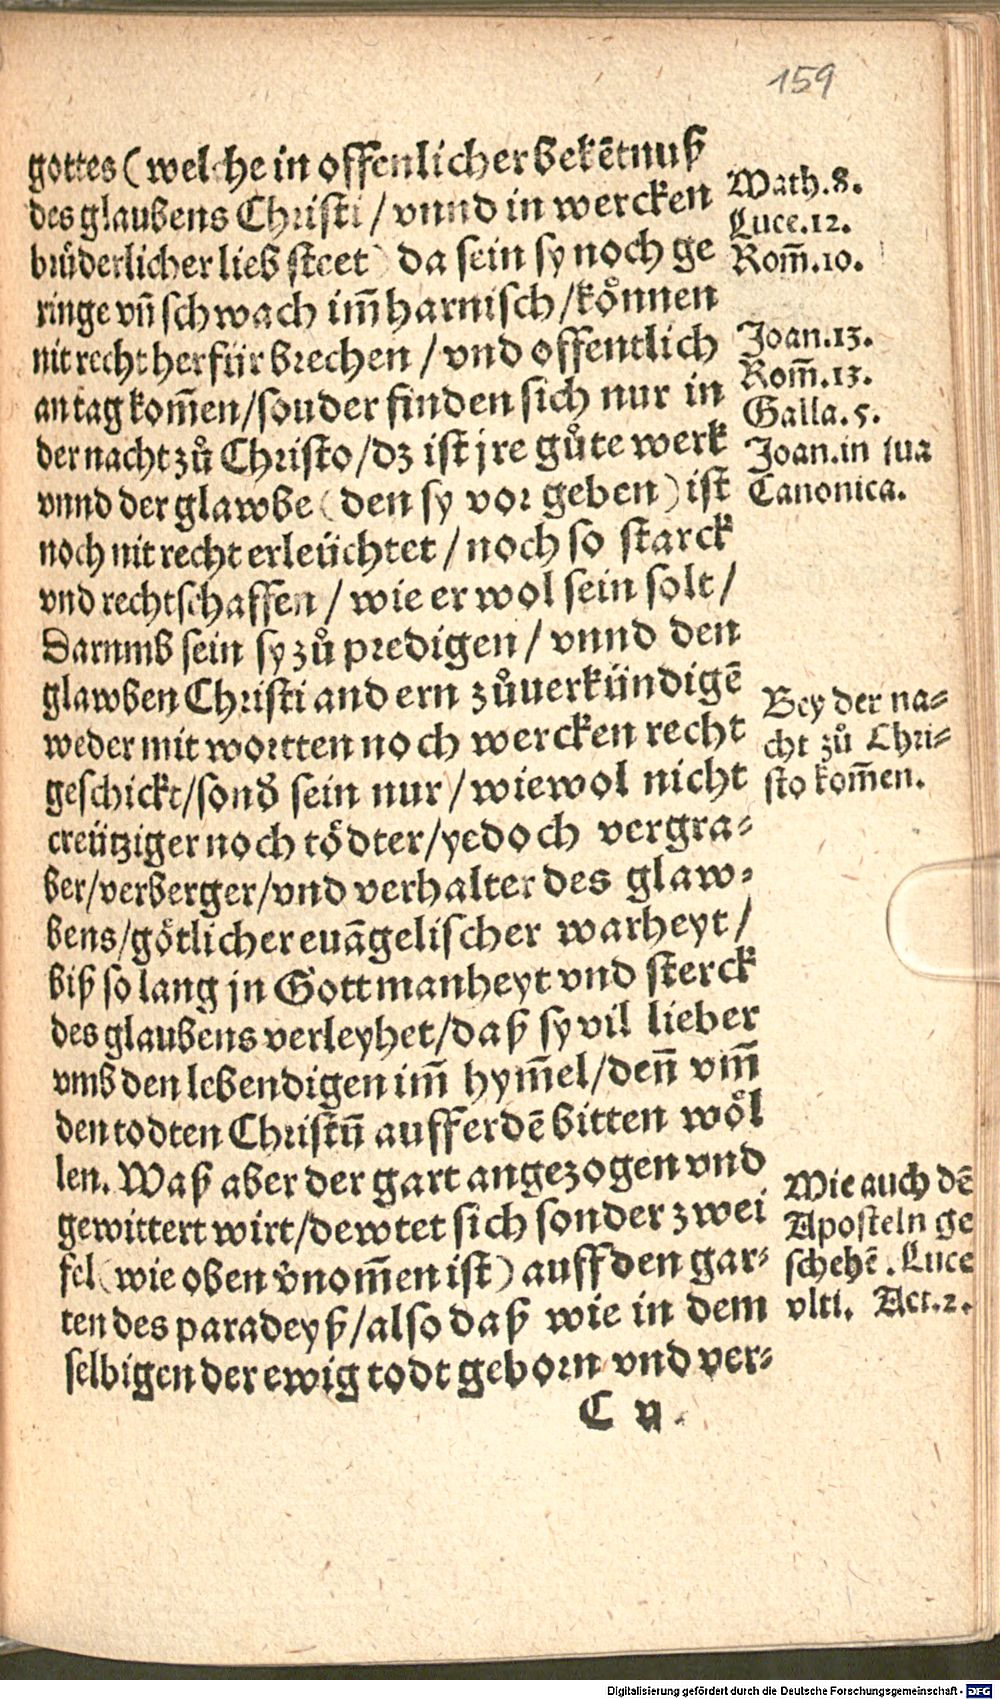 159
gottes (welche in offenlicher bekētnuß
des glaubens Christi / vnnd in wercken
brüderlicher lieb steet) da sein sy noch ge
ringe vn̄ schwach im̄ harnisch / koͤnnen
nit recht herfür brechen / vnd offentlich
an tag kom̄en / sonder finden sich nur in
der nacht zuͦ Christo / dz ist jre guͦte werk
vnnd der glawbe (den sy vor geben) ist
noch nit recht erleüchtet / noch so starck
vnd rechtschaffen / wie er wol sein solt /
Darumb sein sy zuͦ predigen / vnnd den
glawben Christi andern zuͦuerkündigē
weder mit wortten noch wercken recht
geschickt / sond̕ sein nur / wiewol nicht
creütziger noch toͤdter / yedoch vergra⸗
ber / verberger / vnd verhalter des glaw⸗
bens / goͤtlicher euāgelischer warheyt /
biß so lang jn Gott manheyt vnd sterck
des glaubens verleyhet / daß sy vil lieber
vmb den lebendigen im̄ hym̄el / den̄ vm̄
den todten Christū auff erdē bitten woͤl
len. Waß aber der gart angezogen vnd
gewittert wirt / dewtet sich sonder zwei
fel (wie oben v̕nom̄en ist) auff den gar⸗
ten des paradeyß / also daß wie in dem
selbigen der ewig todt geborn vnd ver⸗
C ij.
Math.8.
Luce.12.
Rom̄.10.
Joan.13.
Rom̄.13.
Galla.5.
Joan.in sua
Canonica.
Bey der na⸗
cht zuͦ Chri⸗
sto kom̄en.
Wie auch dē
Aposteln ge
schehē. Luce
vlti. Act.2.
Digitalisierung gefördert durch die Deutsche Forschungsgemeinschaft - DFG